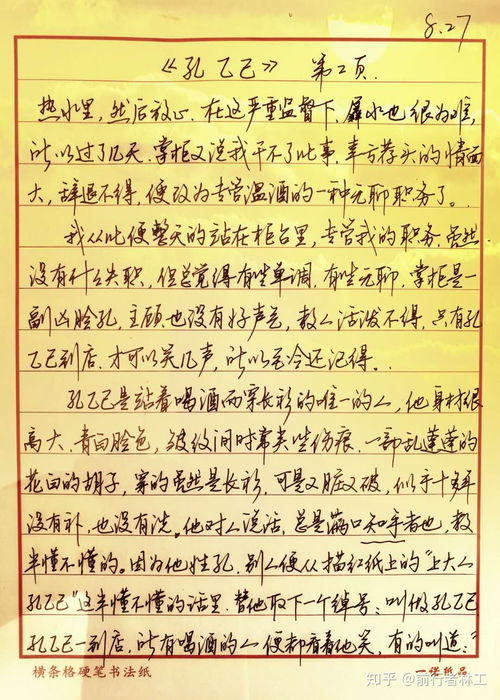 8.27
《孔乙己》 第2页.
热水里,然后放心.在这严重监督下,羼水也很为难,
所以过了几天.掌柜又说我干不了此事,幸亏荐头的情面
大,辞退不得,便改为专管温酒的一种无聊职务了。
我从此便整天的站在柜台里,专管我的职务.虽然
没有什么失职,但总觉得有些单调,有些无聊.掌柜是一
副凶脸孔,主顾也没有好声气,教人活泼不得,只有孔
乙己到店.才可以笑几声,所以至今还记得。
孔乙己是站着喝酒而穿长衫的唯一的人,他身材很
高大.青白脸色,皱纹间时常夹些伤痕.一部乱蓬蓬的
花白的胡子,穿的虽然是长衫,可是又脏又破,似乎十多年
没有补,也没有洗。他对人说话,总是满口之乎者也,教人
半懂不懂的。因为他姓孔,别人便从描红纸上的"上大人
孔乙己"这半懂不懂的话里.替他取下一个绰号:叫做孔乙己
孔乙己一到店,所有喝酒的人便都看着他笑,有的叫道:"
横条格硬笔书法纸
一张纸品
知乎 @前行者林工